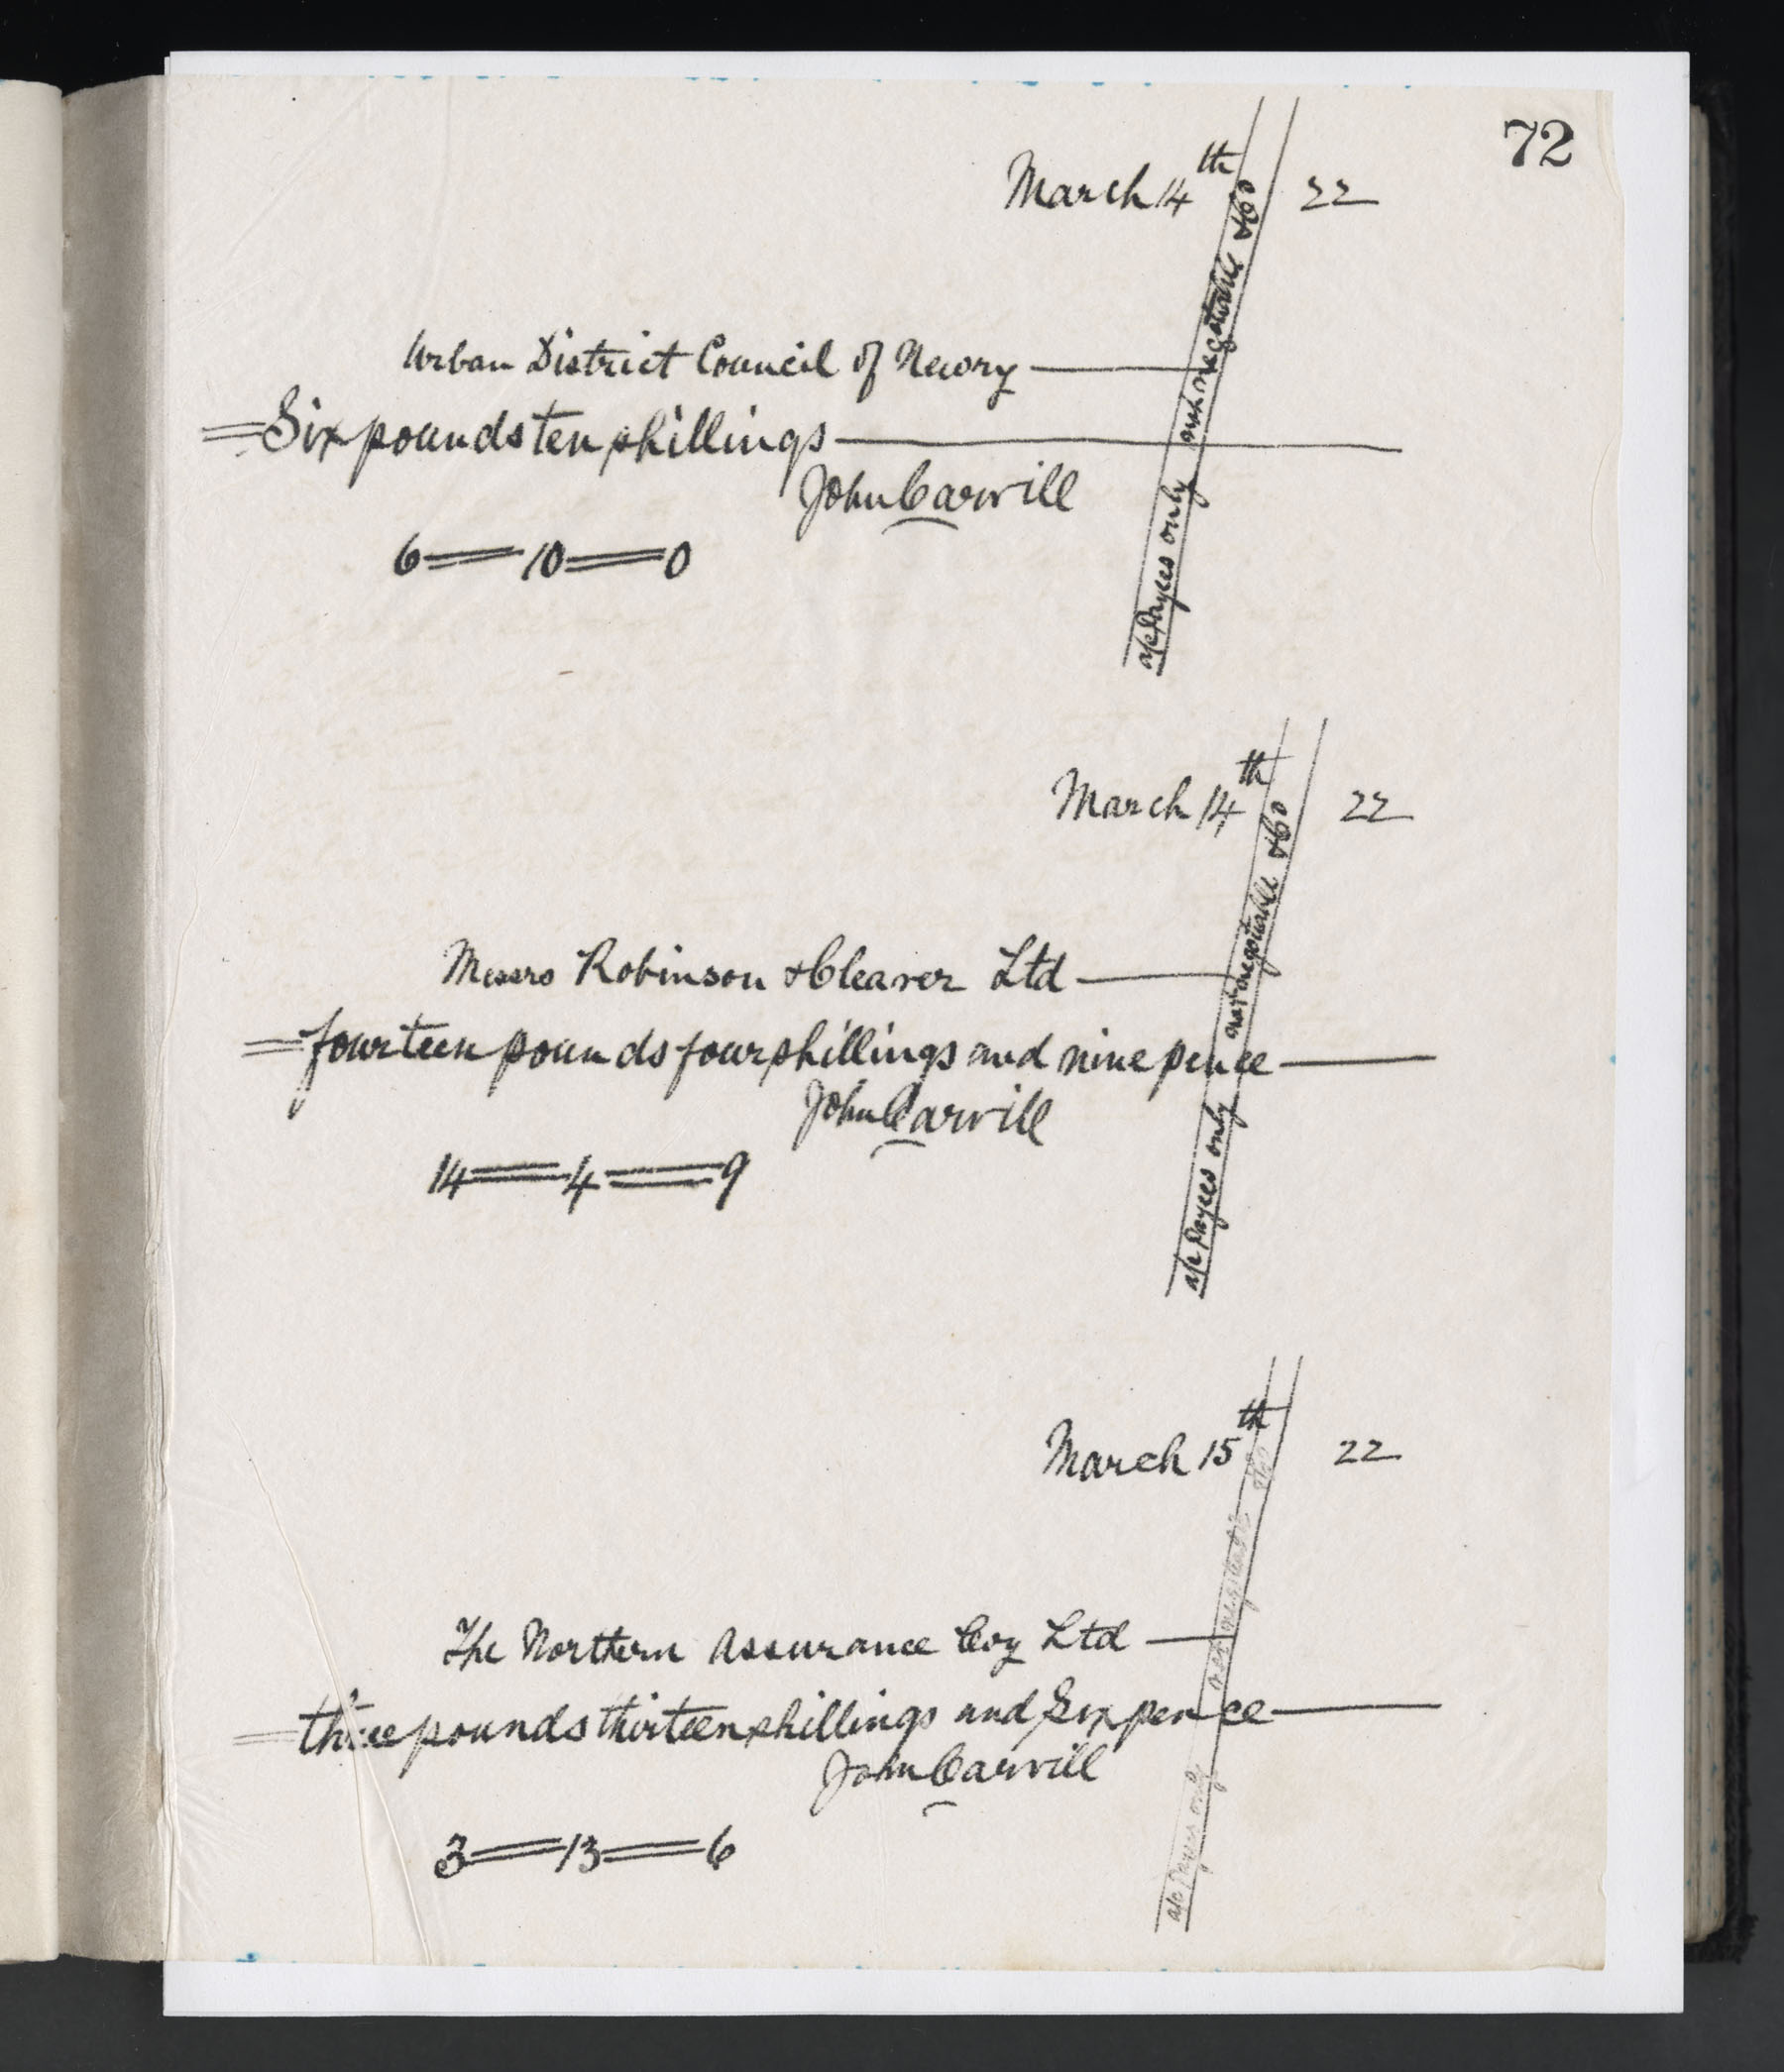 72
March 14th 22
Urban District Council of Newry
=Six pounds ten shillings
John Carvill
6=10=0
a/c Payees only not negotiable & Co
March 14th 22
Messrs Robinson & Cleaver Ltd
=fourteen pounds four shillings and nine pence
John Carvill
14=4=9
a/c Payees only not negotiable & Co
March 15th 22
The Northern Assurance Coy Ltd
=three pounds thirteen shillings and Six pence
John Carvill
3=13=6
a/c Payees only not negotiable & Co